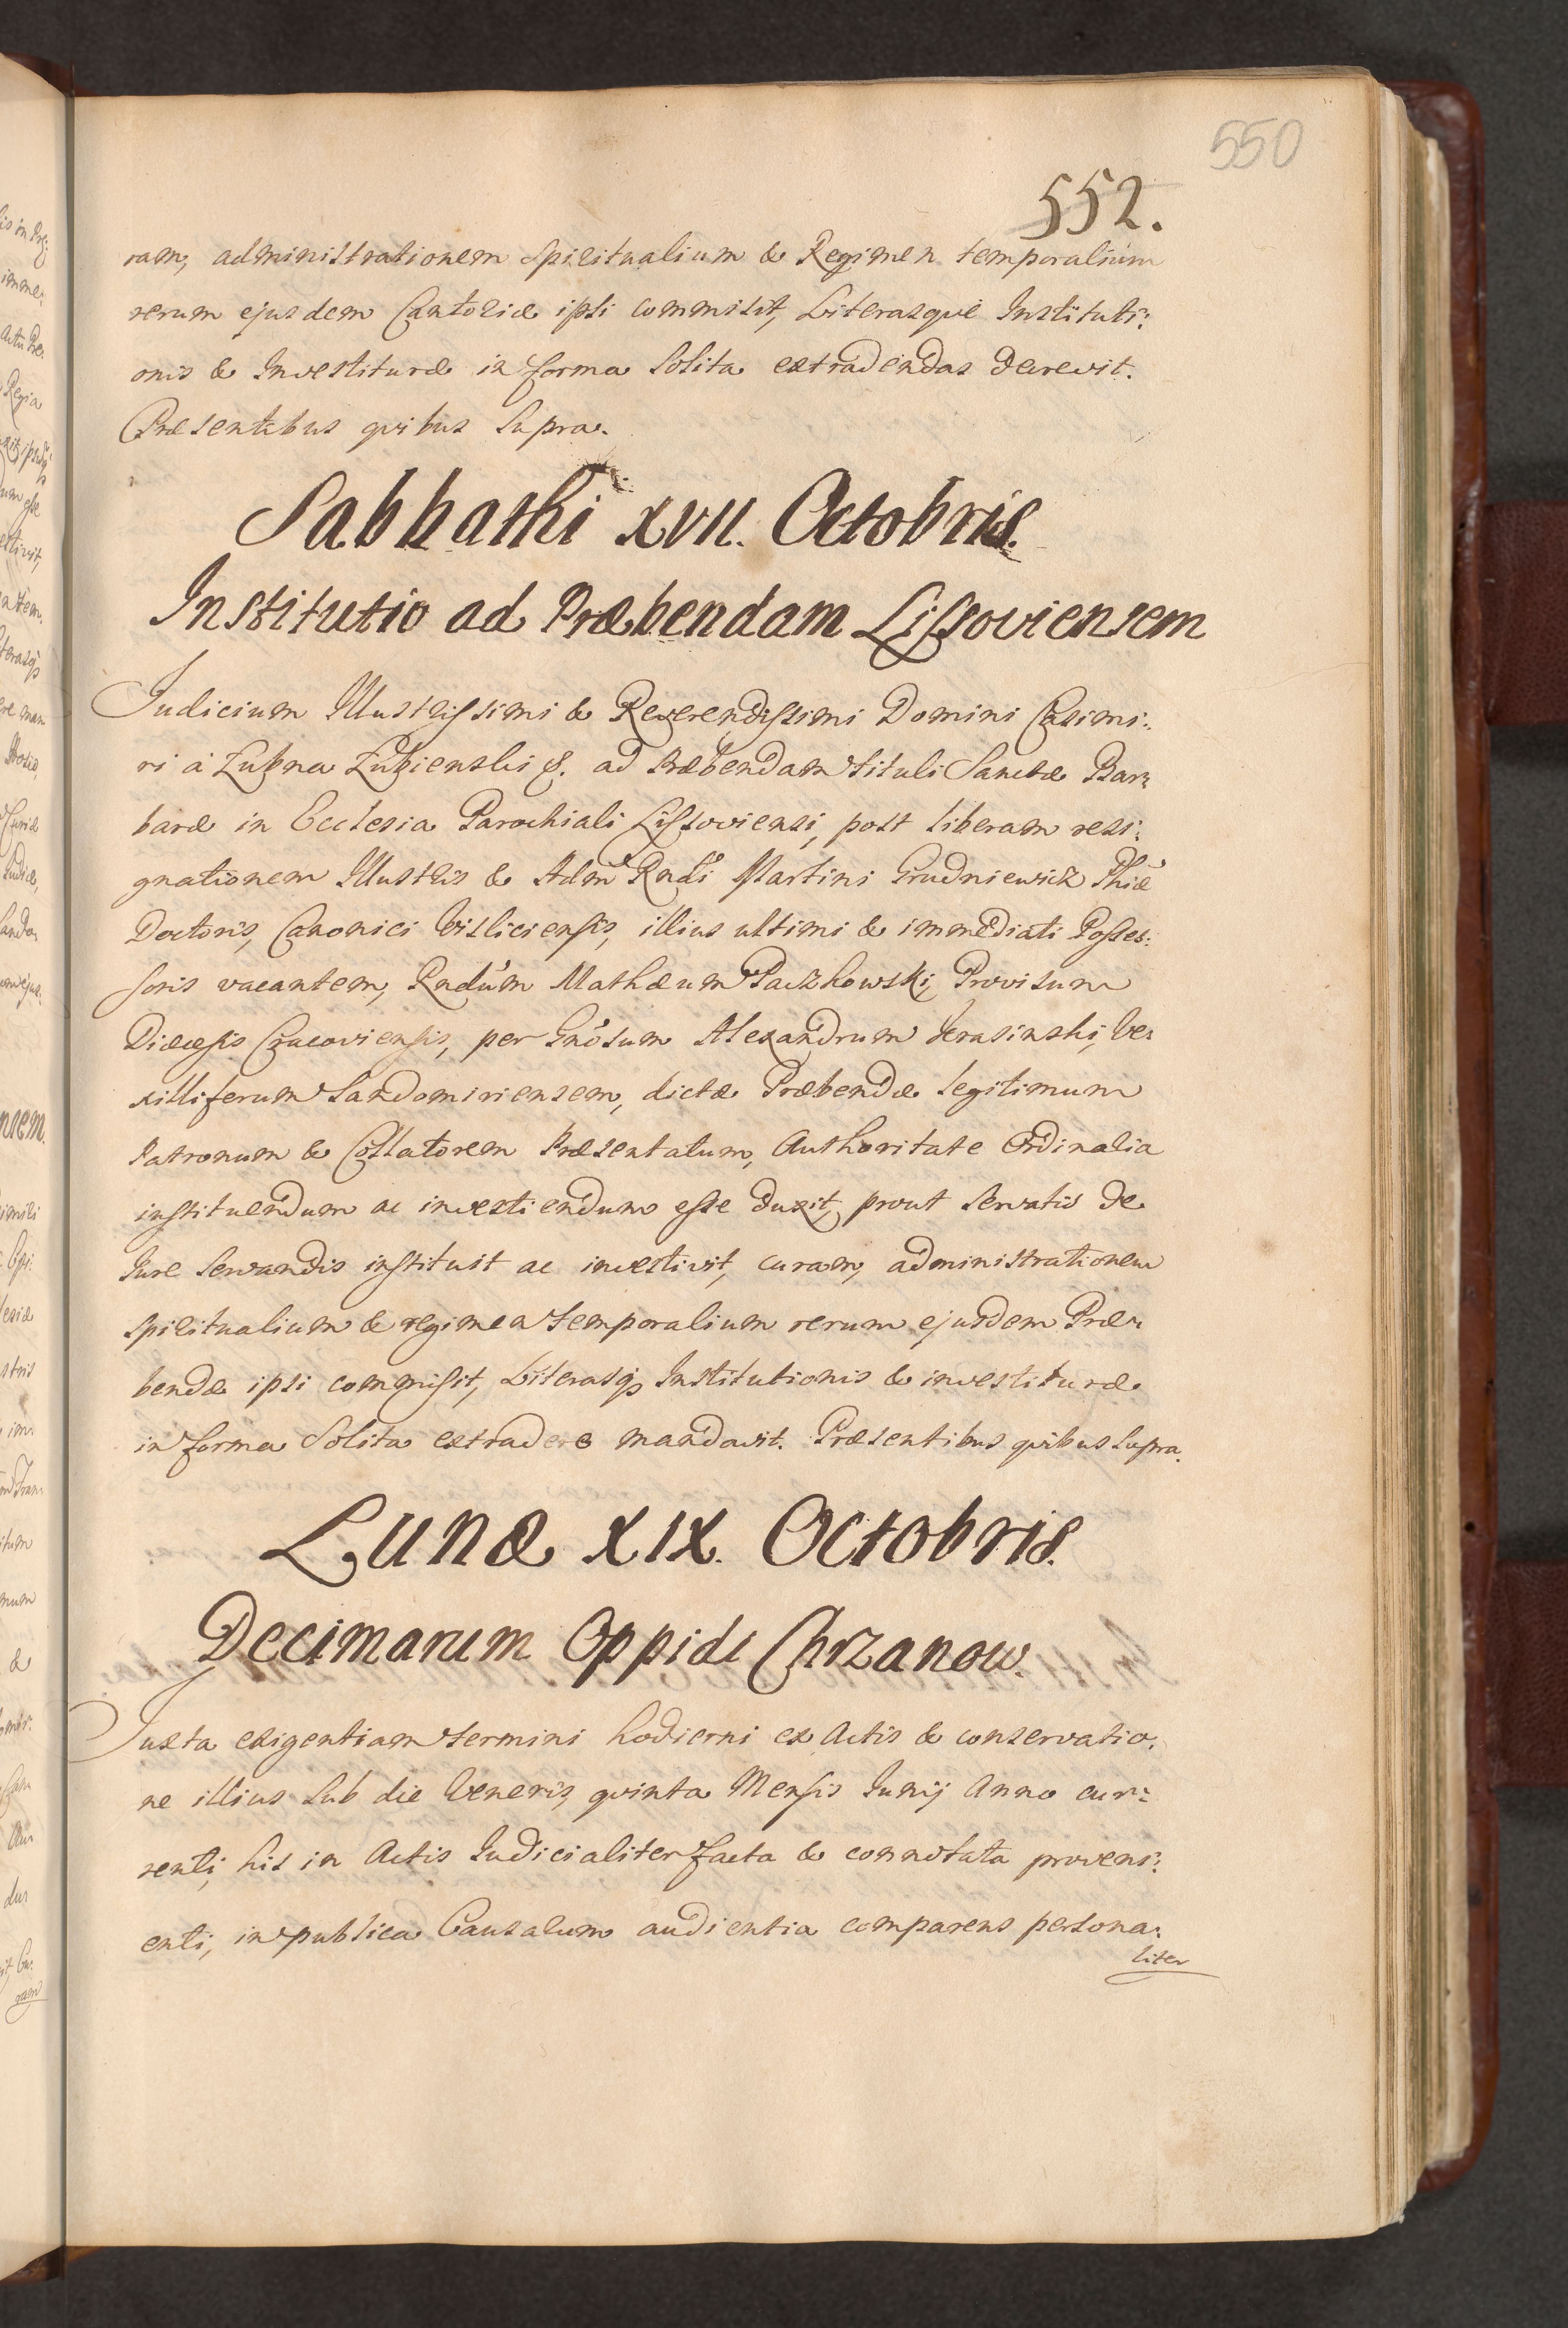 550
552.
ram, administrationem spiritualium & Regimen temporalium
rerum ejusdem Cantoriæ ipsi commisit, Literasque Instituti:
onis & Investituræ in forma solita extradendas decrevit.
Præsentibus quibus supra.
Sabbathi XVII. Octobris.
Institutio ad Præbendam Lissoviensem
Judicium Illustrissimi & Reverendissimi Domini Casimi:
ri à Łubna Łubienski &. ad Præbendam tituli Sanctæ Bar:
baræ in Ecclesia Parochiali Lissoviensi, post liberam resi:
gnationem Illustris & Adm Rndi Martini Grudniewicz Phiæ
Doctoris, Canonici Visliciensis, illius ultimi & immediati Posses:
soris vacantem, Rndum Mathæum Paczkowski, Provisum
Diæcesis Cracoviensis, per Gnosum Alexandrum Jerasinski, Ve:
xilliferum Sandomiriensem, dictæ Præbendæ legitimum
Patronum & Collatorem Præsentatum, Authoritate Ordinalia
instituendum ac investiendum esse duxit, prout servatis de
Jure servandis instituit ac investivit, curam, administrationem
spiritualium & regimen temporalium rerum ejusdem Præ:
bendæ ipsi commisit, Literasq3 Institutionis & investituræ
in forma solita extradere mandavit. Præsentibus quibus supra.
Lunæ XIX. Octobris.
Decimarum Oppidi Chrzanow.
Juxta exigentiam termini hodierni ex Actis & conservatio:
ne illius sub die Veneris, quinta Mensis Junij Anno cur:
renti, his in Actis Judicialiter facta & connotata proveni:
enti, in publica Causarum audientia comparens persona:
liter